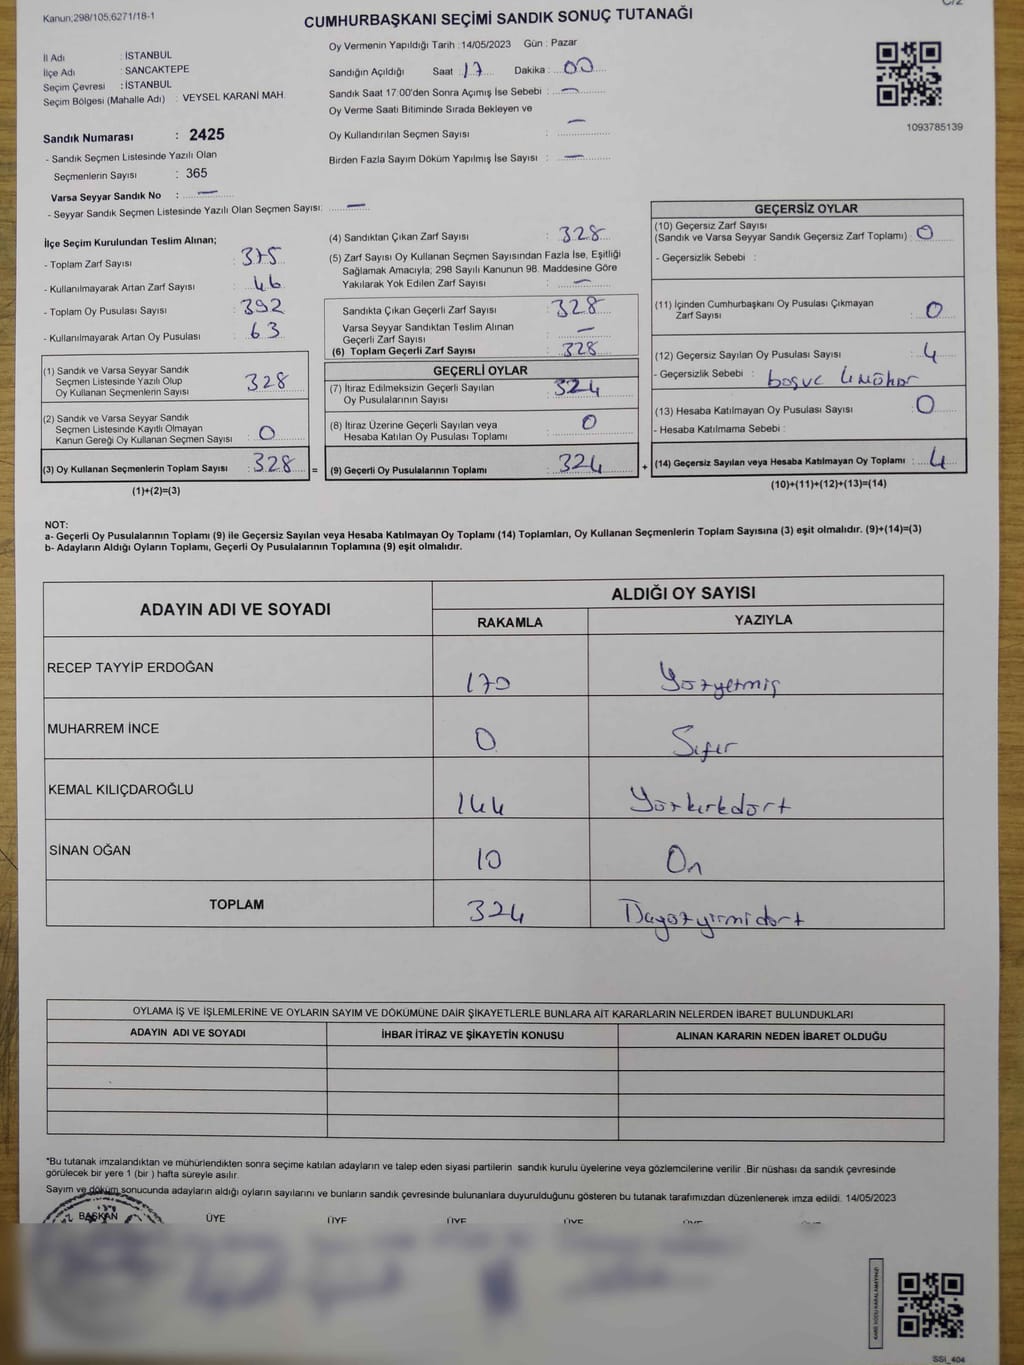 Kanun;298/105,6271/18-1
CUMHURBAŞKANI SEÇİMİ SANDIK SONUÇ TUTANAĞI
İl Adı : İSTANBUL
İlçe Adı : SANCAKTEPE
Seçim Çevresi : İSTANBUL
Seçim Bölgesi (Mahalle Adı) : VEYSEL KARANİ MAH.
Sandık Numarası : 2425
- Sandık Seçmen Listesinde Yazılı Olan
Seçmenlerin Sayısı : 365
Varsa Seyyar Sandık No : —
- Seyyar Sandık Seçmen Listesinde Yazılı Olan Seçmen Sayısı: —
Oy Vermenin Yapıldığı Tarih : 14/05/2023 Gün : Pazar
Sandığın Açıldığı Saat : 17 Dakika : 00
Sandık Saat 17:00'den Sonra Açımış İse Sebebi : —
Oy Verme Saati Bitiminde Sırada Bekleyen ve
Oy Kullandırılan Seçmen Sayısı : —
Birden Fazla Sayım Döküm Yapılmış İse Sayısı : —
1093785139
İlçe Seçim Kurulundan Teslim Alınan;
- Toplam Zarf Sayısı : 375
- Kullanılmayarak Artan Zarf Sayısı : 46
- Toplam Oy Pusulası Sayısı : 392
- Kullanılmayarak Artan Oy Pusulası : 63
(1) Sandık ve Varsa Seyyar Sandık
Seçmen Listesinde Yazılı Olup
Oy Kullanan Seçmenlerin Sayısı : 328
(2) Sandık ve Varsa Seyyar Sandık
Seçmen Listesinde Kayıtlı Olmayan
Kanun Gereği Oy Kullanan Seçmen Sayısı : 0
(3) Oy Kullanan Seçmenlerin Toplam Sayısı : 328 =
(1)+(2)=(3)
(4) Sandıktan Çıkan Zarf Sayısı : 328
(5) Zarf Sayısı Oy Kullanan Seçmen Sayısından Fazla İse, Eşitliği
Sağlamak Amacıyla; 298 Sayılı Kanunun 98. Maddesine Göre
Yakılarak Yok Edilen Zarf Sayısı : —
Sandıkta Çıkan Geçerli Zarf Sayısı : 328
Varsa Seyyar Sandıktan Teslim Alınan
Geçerli Zarf Sayısı : —
(6) Toplam Geçerli Zarf Sayısı : 328
GEÇERLİ OYLAR
(7) İtiraz Edilmeksizin Geçerli Sayılan
Oy Pusulalarının Sayısı : 324
(8) İtiraz Üzerine Geçerli Sayılan veya
Hesaba Katılan Oy Pusulası Toplamı : 0
(9) Geçerli Oy Pusulalarının Toplamı : 324 +
GEÇERSİZ OYLAR
(10) Geçersiz Zarf Sayısı
(Sandık ve Varsa Seyyar Sandık Geçersiz Zarf Toplamı) : 0
- Geçersizlik Sebebi :
(11) İçinden Cumhurbaşkanı Oy Pusulası Çıkmayan
Zarf Sayısı : 0
(12) Geçersiz Sayılan Oy Pusulası Sayısı : 4
- Geçersizlik Sebebi :
(13) Hesaba Katılmayan Oy Pusulası Sayısı : 0
- Hesaba Katılmama Sebebi :
(14) Geçersiz Sayılan veya Hesaba Katılmayan Oy Toplamı : 4
(10)+(11)+(12)+(13)=(14)
NOT:
a- Geçerli Oy Pusulalarının Toplamı (9) ile Geçersiz Sayılan veya Hesaba Katılmayan Oy Toplamı (14) Toplamları, Oy Kullanan Seçmenlerin Toplam Sayısına (3) eşit olmalıdır. (9)+(14)=(3)
b- Adayların Aldığı Oyların Toplamı, Geçerli Oy Pusulalarının Toplamına (9) eşit olmalıdır.
ADAYIN ADI VE SOYADI ALDIĞI OY SAYISI
RAKAMLA YAZIYLA
RECEP TAYYİP ERDOĞAN 170 Yüzyetmiş
MUHARREM İNCE 0 Sıfır
KEMAL KILIÇDAROĞLU 144 Yüzkırkdört
SİNAN OĞAN 10 On
TOPLAM 324 Üçyüzyirmidört
OYLAMA İŞ VE İŞLEMLERİNE VE OYLARIN SAYIM VE DÖKÜMÜNE DAİR ŞİKAYETLERLE BUNLARA AİT KARARLARIN NELERDEN İBARET BULUNDUKLARI
ADAYIN ADI VE SOYADI İHBAR İTİRAZ VE ŞİKAYETİN KONUSU ALINAN KARARIN NEDEN İBARET OLDUĞU
*Bu tutanak imzalandıktan ve mühürlendikten sonra seçime katılan adayların ve talep eden siyasi partilerin sandık kurulu üyelerine veya gözlemcilerine verilir .Bir nüshası da sandık çevresinde
görülecek bir yere 1 (bir ) hafta süreyle asılır.
Sayım ve döküm sonucunda adayların aldığı oyların sayılarını ve bunların sandık çevresinde bulunanlara duyurulduğunu gösteren bu tutanak tarafımızdan düzenlenerek imza edildi. 14/05/2023
BAŞKAN ÜYE ÜYE ÜYE ÜYE
SSI_404